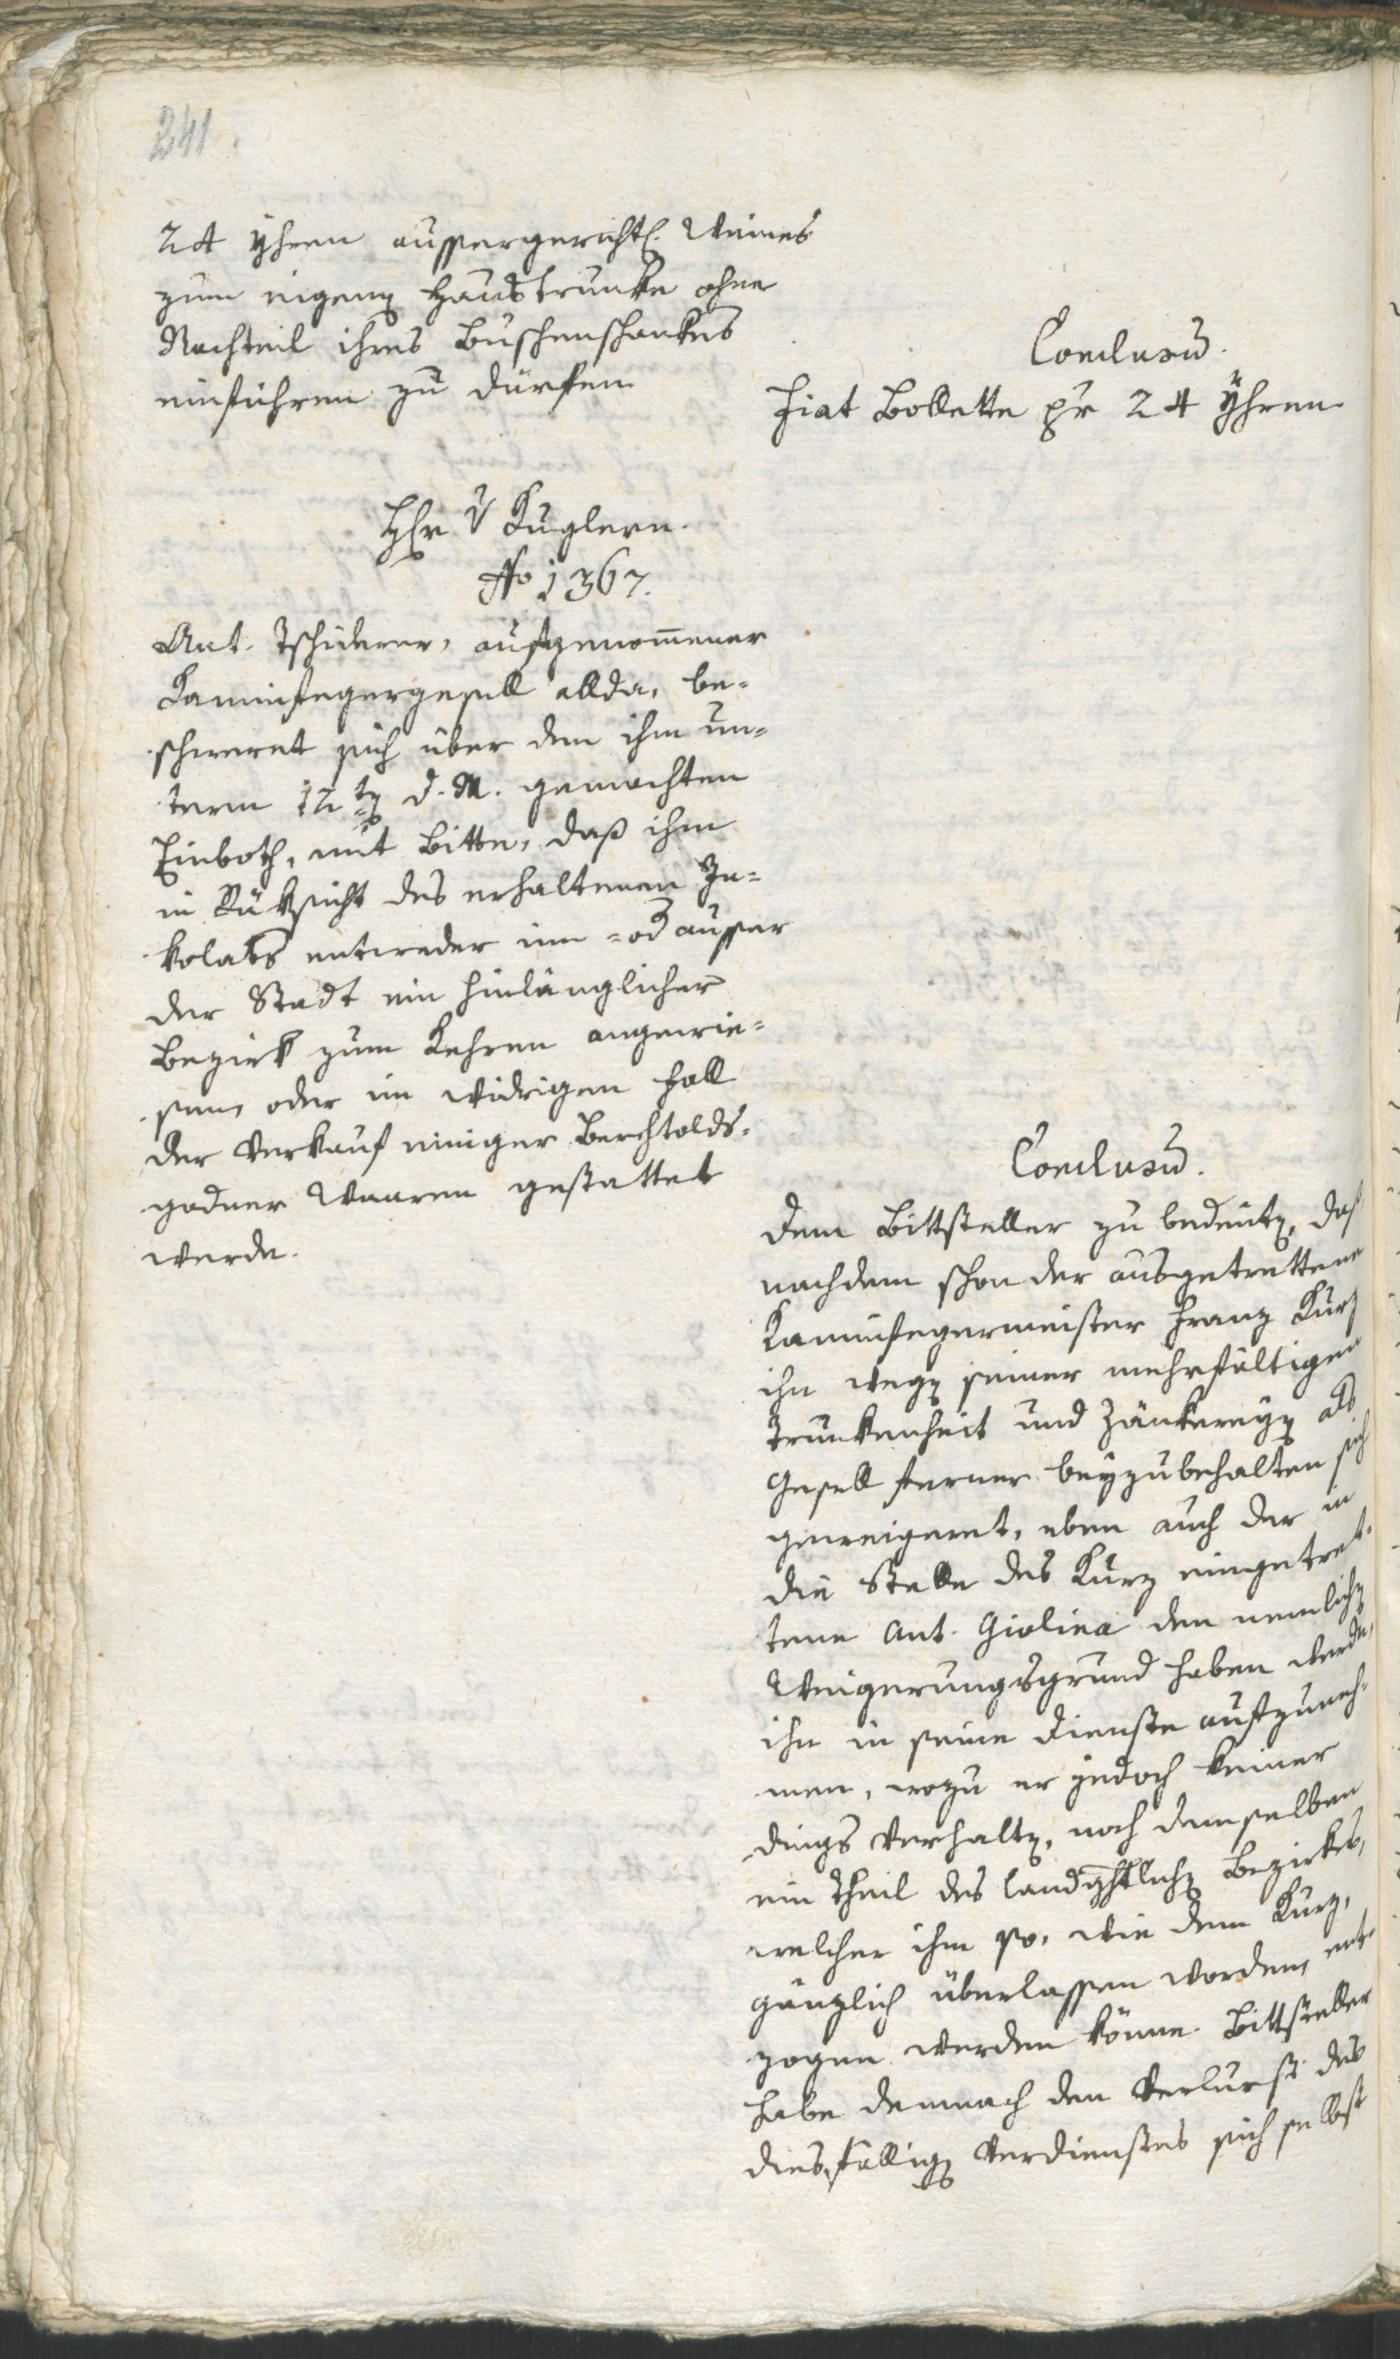 241.
24 Yhren aussergerichtl. Weines
zum eigenen Haustrunke ohne
Nachteil ihres Buschenschankes
einführen zu dürfen.
Conclusum.
Fiat Bollette pr 24 Yhren.
Hr v Kuglern.
No 1367.
Ant. Tschiderer, aufgenommener
Kaminfegergesell allda, be-
schweret sich über den ihm un-
term 12ten d. M. gemachten
Einboth, mit Bitte, daß ihm
in Rüksicht des erhaltenen In-
kolats entweder inn- od ausser
der Stadt ein hinlänglicher
Bezirk zum Kehren angewie-
sen, oder im widrigen Fall
der Verkauf einiger Berchtolds-
gadner Waaren gestattet
werde.
Conclusum.
Dem Bittsteller zu bedeuten, daß
nachdem schon der ausgetrettene
Kaminfegermeister Franz Kurz
ihn wegen seiner mehrfältigen
Trunkenheit und Zänkereyen als
Gesell ferner beyzubehalten sich
geweigeret, eben auch der in
die Stelle des Kurz eingetret-
tene Ant. Giolina den nemlichen
Weigerungsgrund haben werde,
ihn in seine Dienste aufzuneh-
men, wozu er jedoch keiner
dings verhalten, noch demselben
ein Theil des landgchtlichen Bezirkes,
welcher ihm so, wie dem Kurz,
gänzlich überlassen worden, ent-
zogen werden könne. Bittsteller
habe demnach den Verlurst des
diesfälligen Verdienstes sich selbst